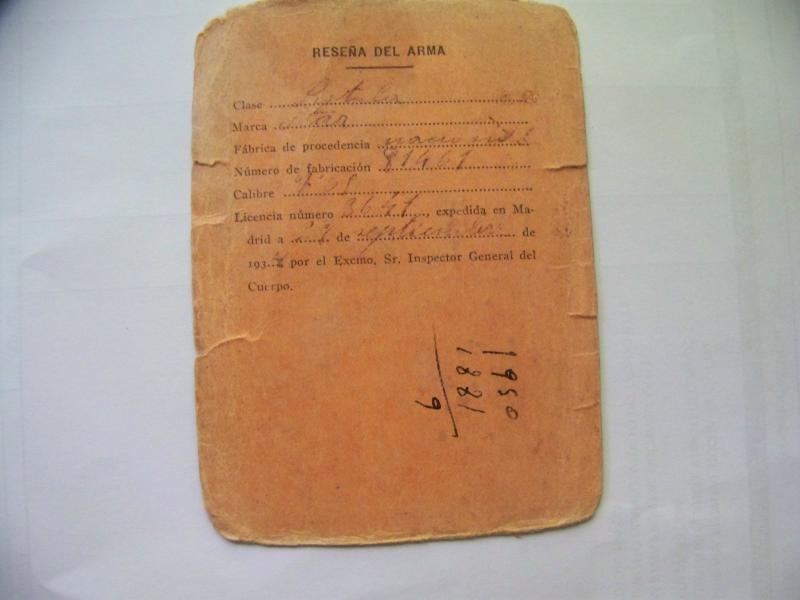 RESEÑA DEL ARMA
Clase Pistola
Marca Star
Fábrica de procedencia nacional
Número de fabricación 81461
Calibre 7'65
Licencia número 3641, expedida en Ma-
drid a 7 de septiembre de
193 por el Excmo. Sr. Inspector General del
Cuerpo.
1950
1881
6